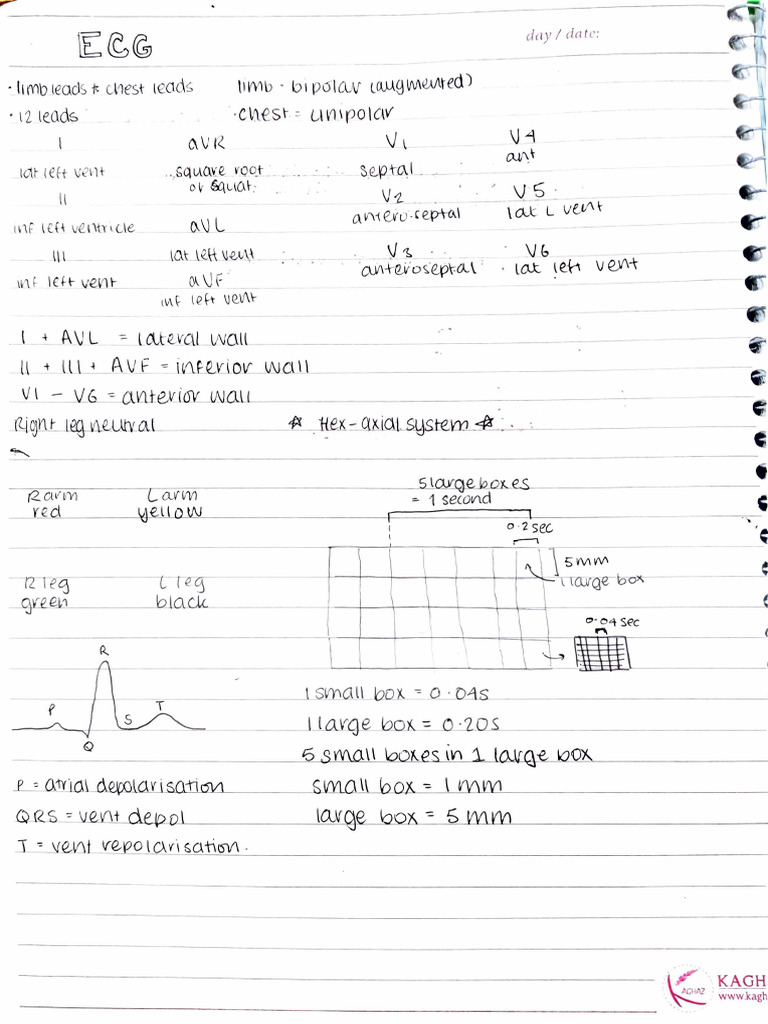 ECG
day / date:
· limb leads & chest leads limb - bipolar (augmented)
· 12 leads · chest = unipolar
I aVR V1 V4
lat left vent square root septal ant
or squat
II V2 V5
inf left ventricle aVL antero-septal lat L vent
III lat left vent V3 V6
inf left vent aVF anteroseptal lat left vent
inf left vent
I + AVL = lateral wall
II + III + AVF = inferior wall
V1 - V6 = anterior wall
Right leg neutral ☆ Hex-axial system ☆
R arm L arm
red yellow
5 large boxes
= 1 second
0.2 sec
5 mm
1 large box
R leg L leg
green black
0.04 sec
R
P
Q
S
T
1 small box = 0.04s
1 large box = 0.20s
5 small boxes in 1 large box
P = atrial depolarisation small box = 1 mm
QRS = vent depol large box = 5 mm
T = vent repolarisation.
KAGH
AGHAZ
www.kagh